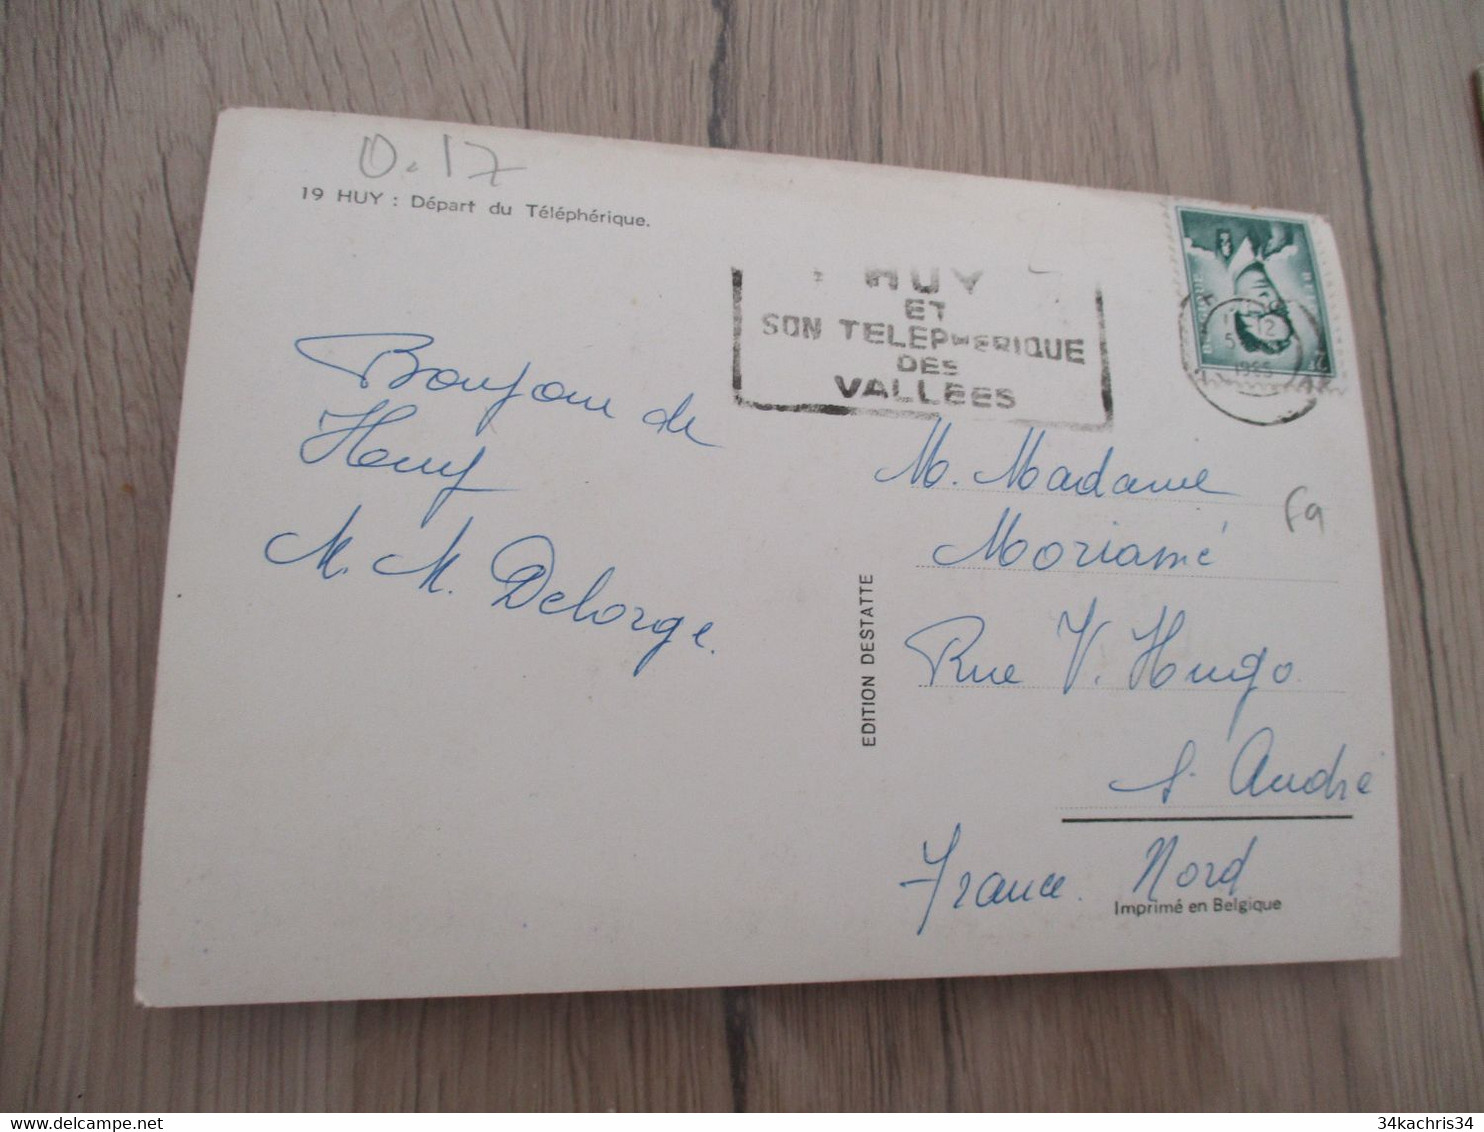 0.17
19 HUY : Départ du Téléphérique.
HUY
ET
SON TELEPHERIQUE
DES
VALLEES
BELGIE
BELGIQUE
12
5
Bonjour de
Houy
M. M. Delorge.
M. Madame
Moriamé
Rue V. Hugo.
S. André
France. Nord
EDITION DESTATTE
Imprimé en Belgique
34kachris34